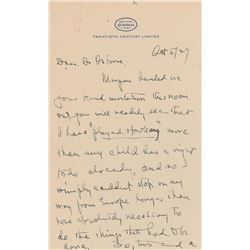 TWENTIETH CENTURY LIMITED
Oct 5/27
Dear Dr Osborne,
Morgan handed me
your kind invitation this noon
but you will readily see that
I have "played Hookey" more
than any child has a right
to do already, and so I
simply couldn't stop on my
way from Europe longer than
was absolutely necessary to
do the things that had to be
done. So, two and a